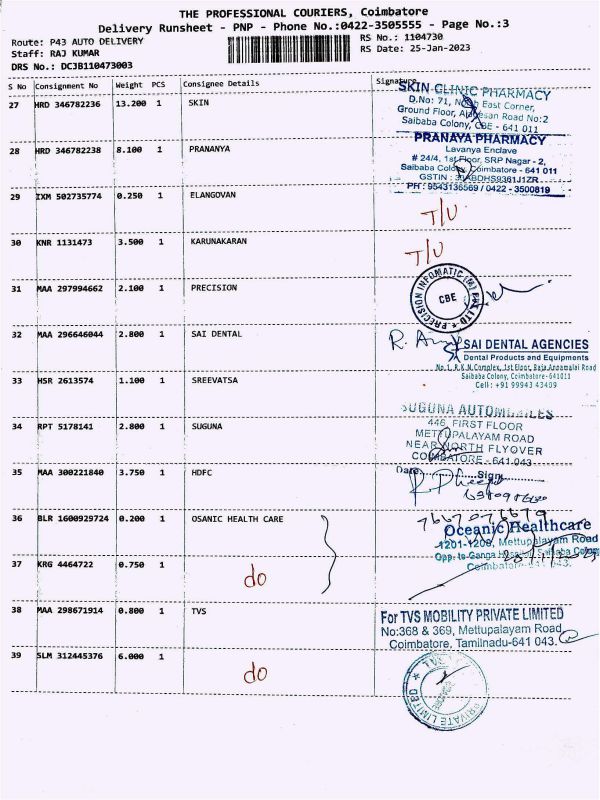 THE PROFESSIONAL COURIERS, Coimbatore
Delivery Runsheet - PNP - Phone No.:0422-3505555 - Page No.:3
Route: P43 AUTO DELIVERY
RS No.: 1104730
Staff: RAJ KUMAR
RS Date: 25-Jan-2023
DRS No.: DCJB110473003
S No Consignment No Weight PCS Consignee Details Signature
27 HRD 346782236 13.200 1 SKIN
SKIN CLINIC PHARMACY
D.No: 71, North East Corner,
Ground Floor, Alagesan Road No:2
Saibaba Colony, CBE - 641 011
28 HRD 346782238 8.100 1 PRANANYA
PRANAYA PHARMACY
Lavanya Enclave
# 24/4, 1st Floor, SRP Nagar - 2,
Saibaba Colony Coimbatore - 641 011
GSTIN :
PH : 9543136569 / 0422 - 3500819
29 IXM 502735774 0.250 1 ELANGOVAN
T/U
30 KNR 1131473 3.500 1 KARUNAKARAN
T/U
31 MAA 297994662 2.100 1 PRECISION
PRECISION INFOMATIC (M) PVT LTD
CBE
32 MAA 296646044 2.800 1 SAI DENTAL
SAI DENTAL AGENCIES
Dental Products and Equipments
No.1, R.K.N.Complex, 1st Floor, Raja Annamalai Road
Saibaba Colony, Coimbatore-641011
Cell : +91 99943 43409
33 HSR 2613574 1.100 1 SREEVATSA
34 RPT 5178141 2.800 1 SUGUNA
SUGUNA AUTOMOBILES
446, FIRST FLOOR
METTUPALAYAM ROAD
NEAR NORTH FLYOVER
COIMBATORE - 641.043
Date Sign
35 MAA 300221840 3.750 1 HDFC
36 BLR 1600929724 0.200 1 OSANIC HEALTH CARE
Oceanic Healthcare
1201-1208, Mettupalayam Road
Opp. to Ganga Hospital, Saibaba Colony
Coimbatore - 641 043.
37 KRG 4464722 0.750 1
do
38 MAA 298671914 0.800 1 TVS
For TVS MOBILITY PRIVATE LIMITED
No:368 & 369, Mettupalayam Road
Coimbatore, Tamilnadu-641 043.
39 SLM 312445376 6.000 1
do
PRIVATE LIMITED